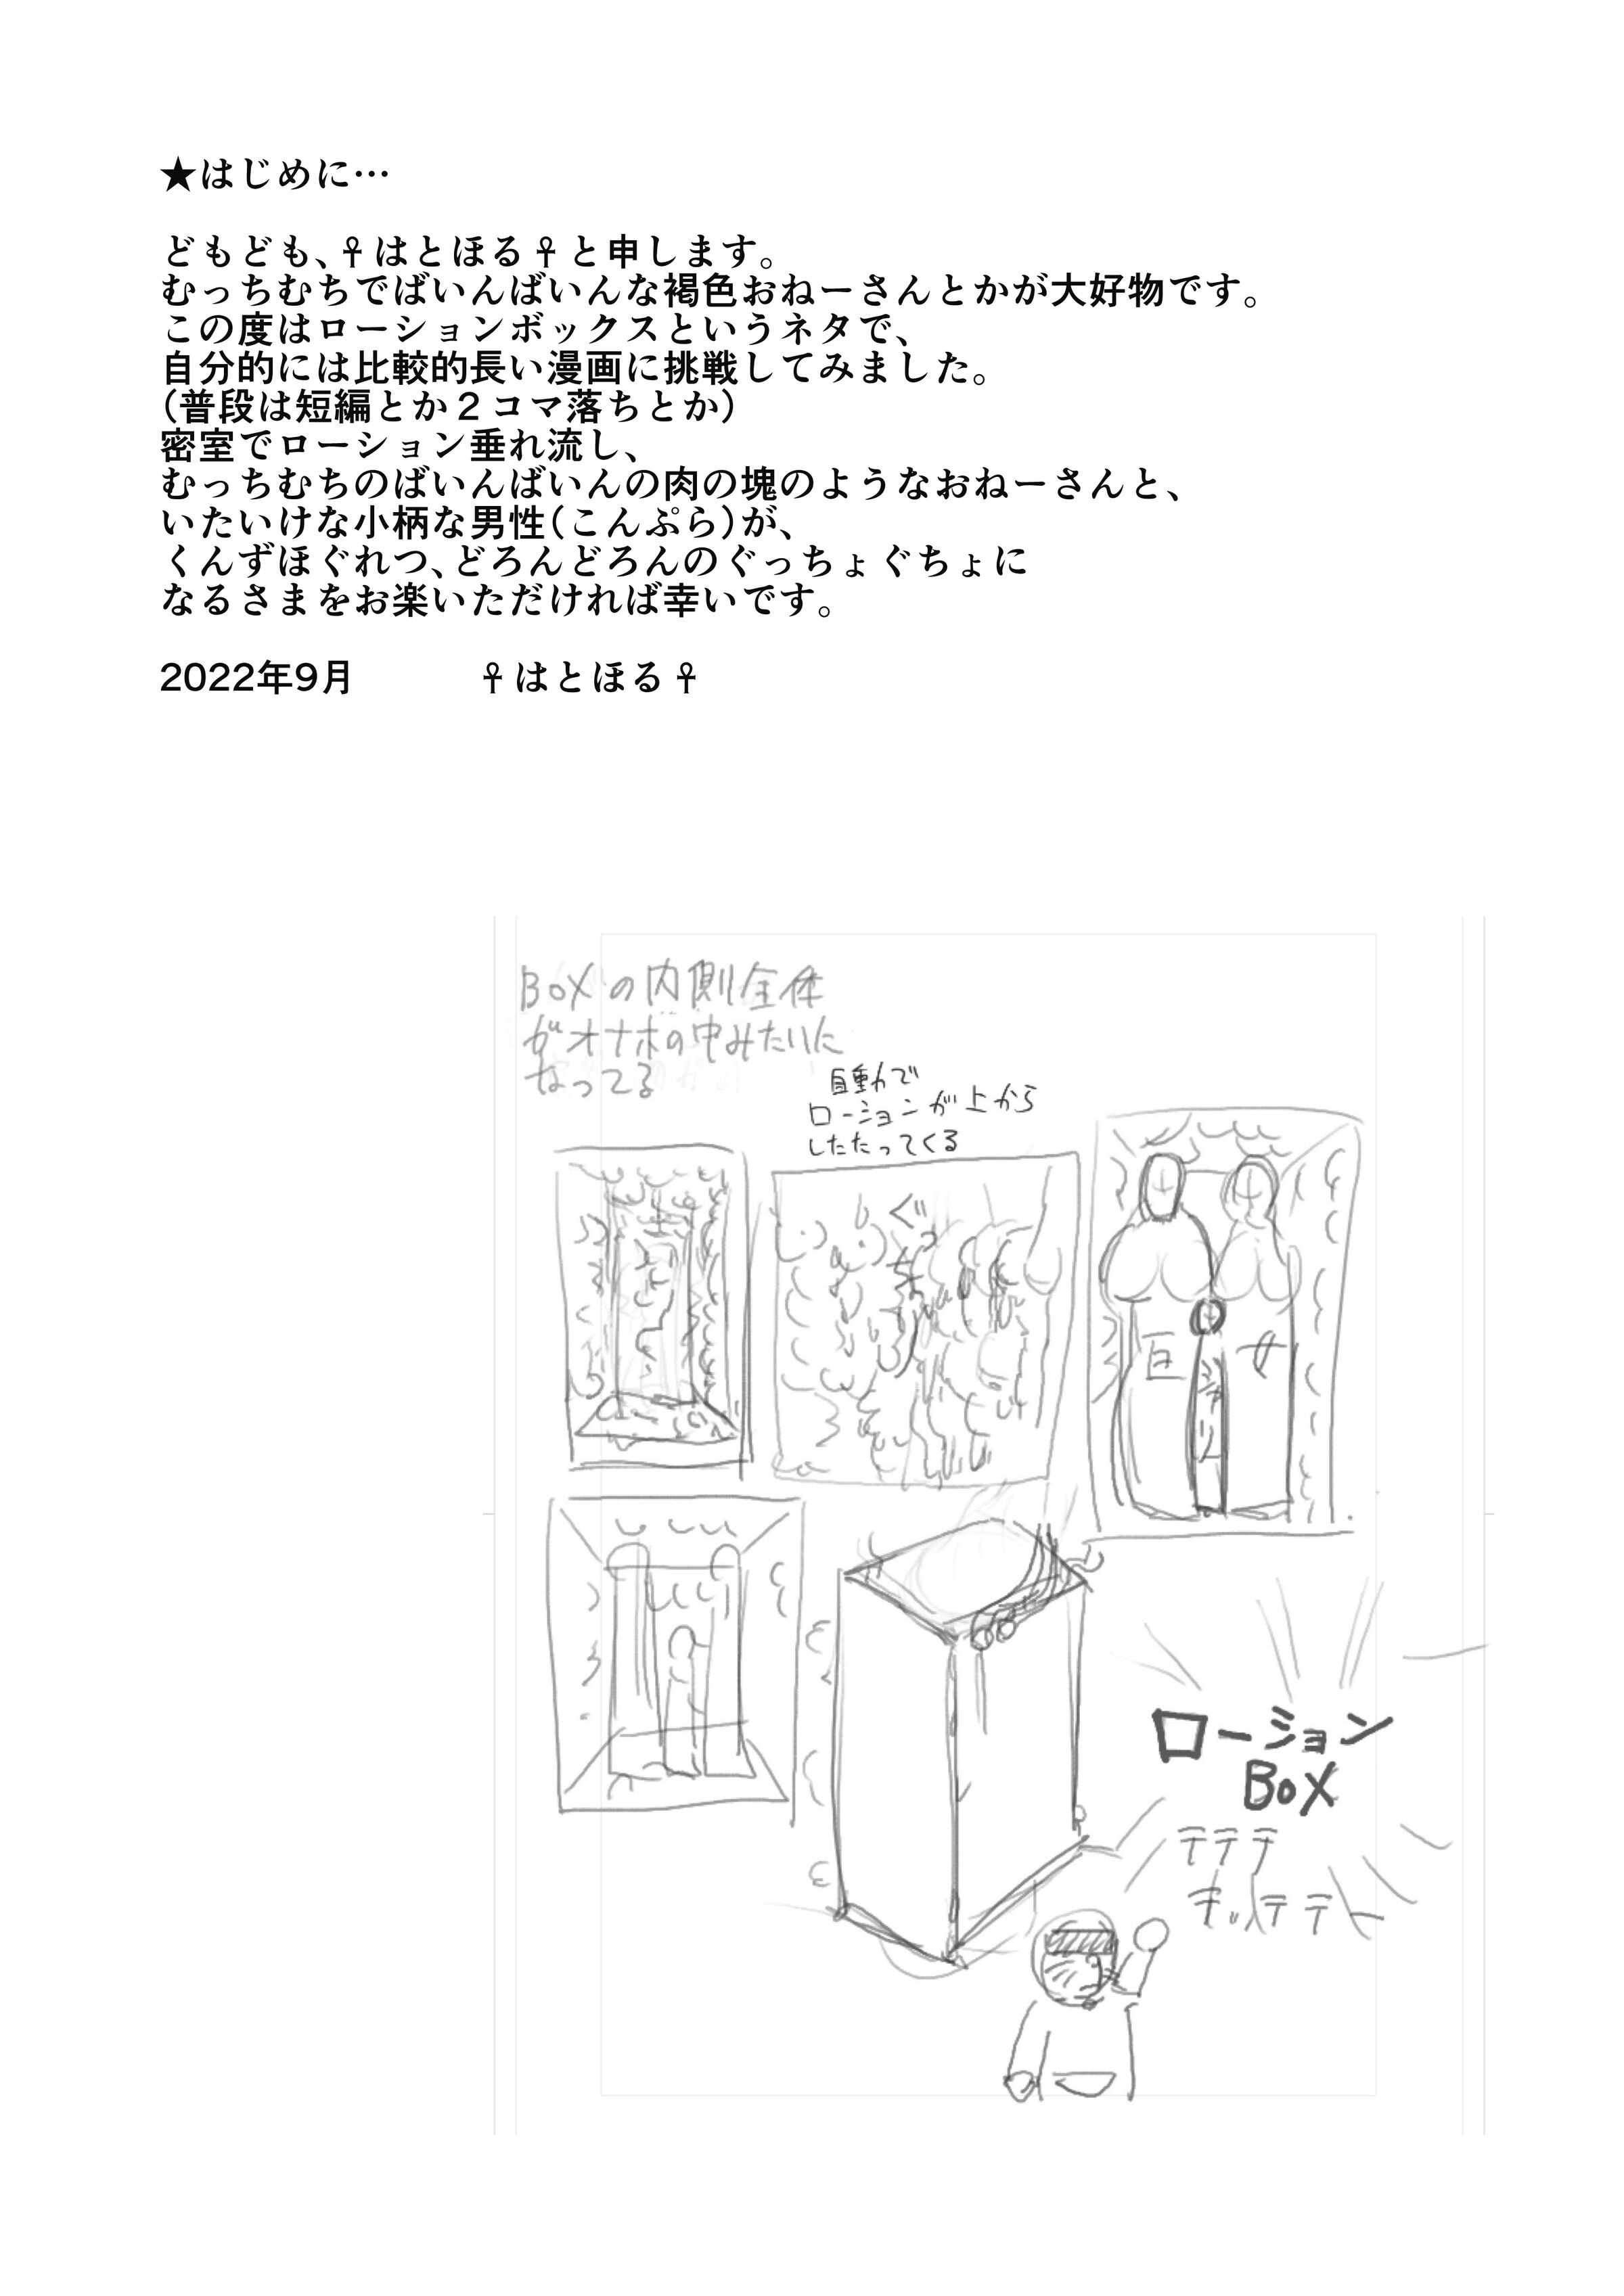 ★はじめに…
どもども、☥はとほる☥と申します。
むっちむちでばいんばいんな褐色おねーさんとかが大好物です。
この度はローションボックスというネタで、
自分的には比較的長い漫画に挑戦してみました。
（普段は短編とか２コマ落ちとか）
密室でローション垂れ流し、
むっちむちのばいんばいんの肉の塊のようなおねーさんと、
いたいけな小柄な男性（こんぷら）が、
くんずほぐれつ、どろんどろんのぐっちょぐちょに
なるさまをお楽いただければ幸いです。
2022年9月 ☥はとほる☥
BOXの内側全体
がオナホの中みたいに
なってる
自動で
ローションが上から
したたってくる
巨
女
ローション
BOX
テテテ